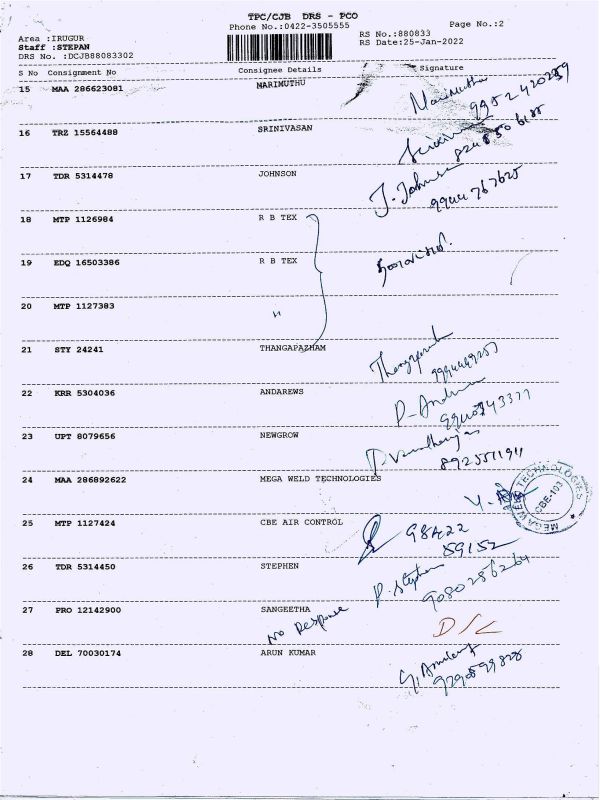 TPC/CJB DRS - PCO
Phone No.:0422-3505555
Page No.:2
Area :IRUGUR
RS No.:880833
Staff :STEPAN
RS Date:25-Jan-2022
DRS No. :DCJB88083302
S No Consignment No Consignee Details Signature
15 MAA 286623081 MARIMUTHU Marimuthu
9952420259
16 TRZ 15564488 SRINIVASAN
17 TDR 5314478 JOHNSON J. Johnson
9944767625
18 MTP 1126984 R B TEX
19 EDQ 16503386 R B TEX
20 MTP 1127383 "
21 STY 24241 THANGAPAZHAM
22 KRR 5304036 ANDAREWS
23 UPT 8079656 NEWGROW
8925511911
24 MAA 286892622 MEGA WELD TECHNOLOGIES
MEGA WELD TECHNOLOGIES
CBE-103
25 MTP 1127424 CBE AIR CONTROL 98422
59152
26 TDR 5314450 STEPHEN P. Stephen
9080286264
27 PRO 12142900 SANGEETHA
No Response D/L
28 DEL 70030174 ARUN KUMAR